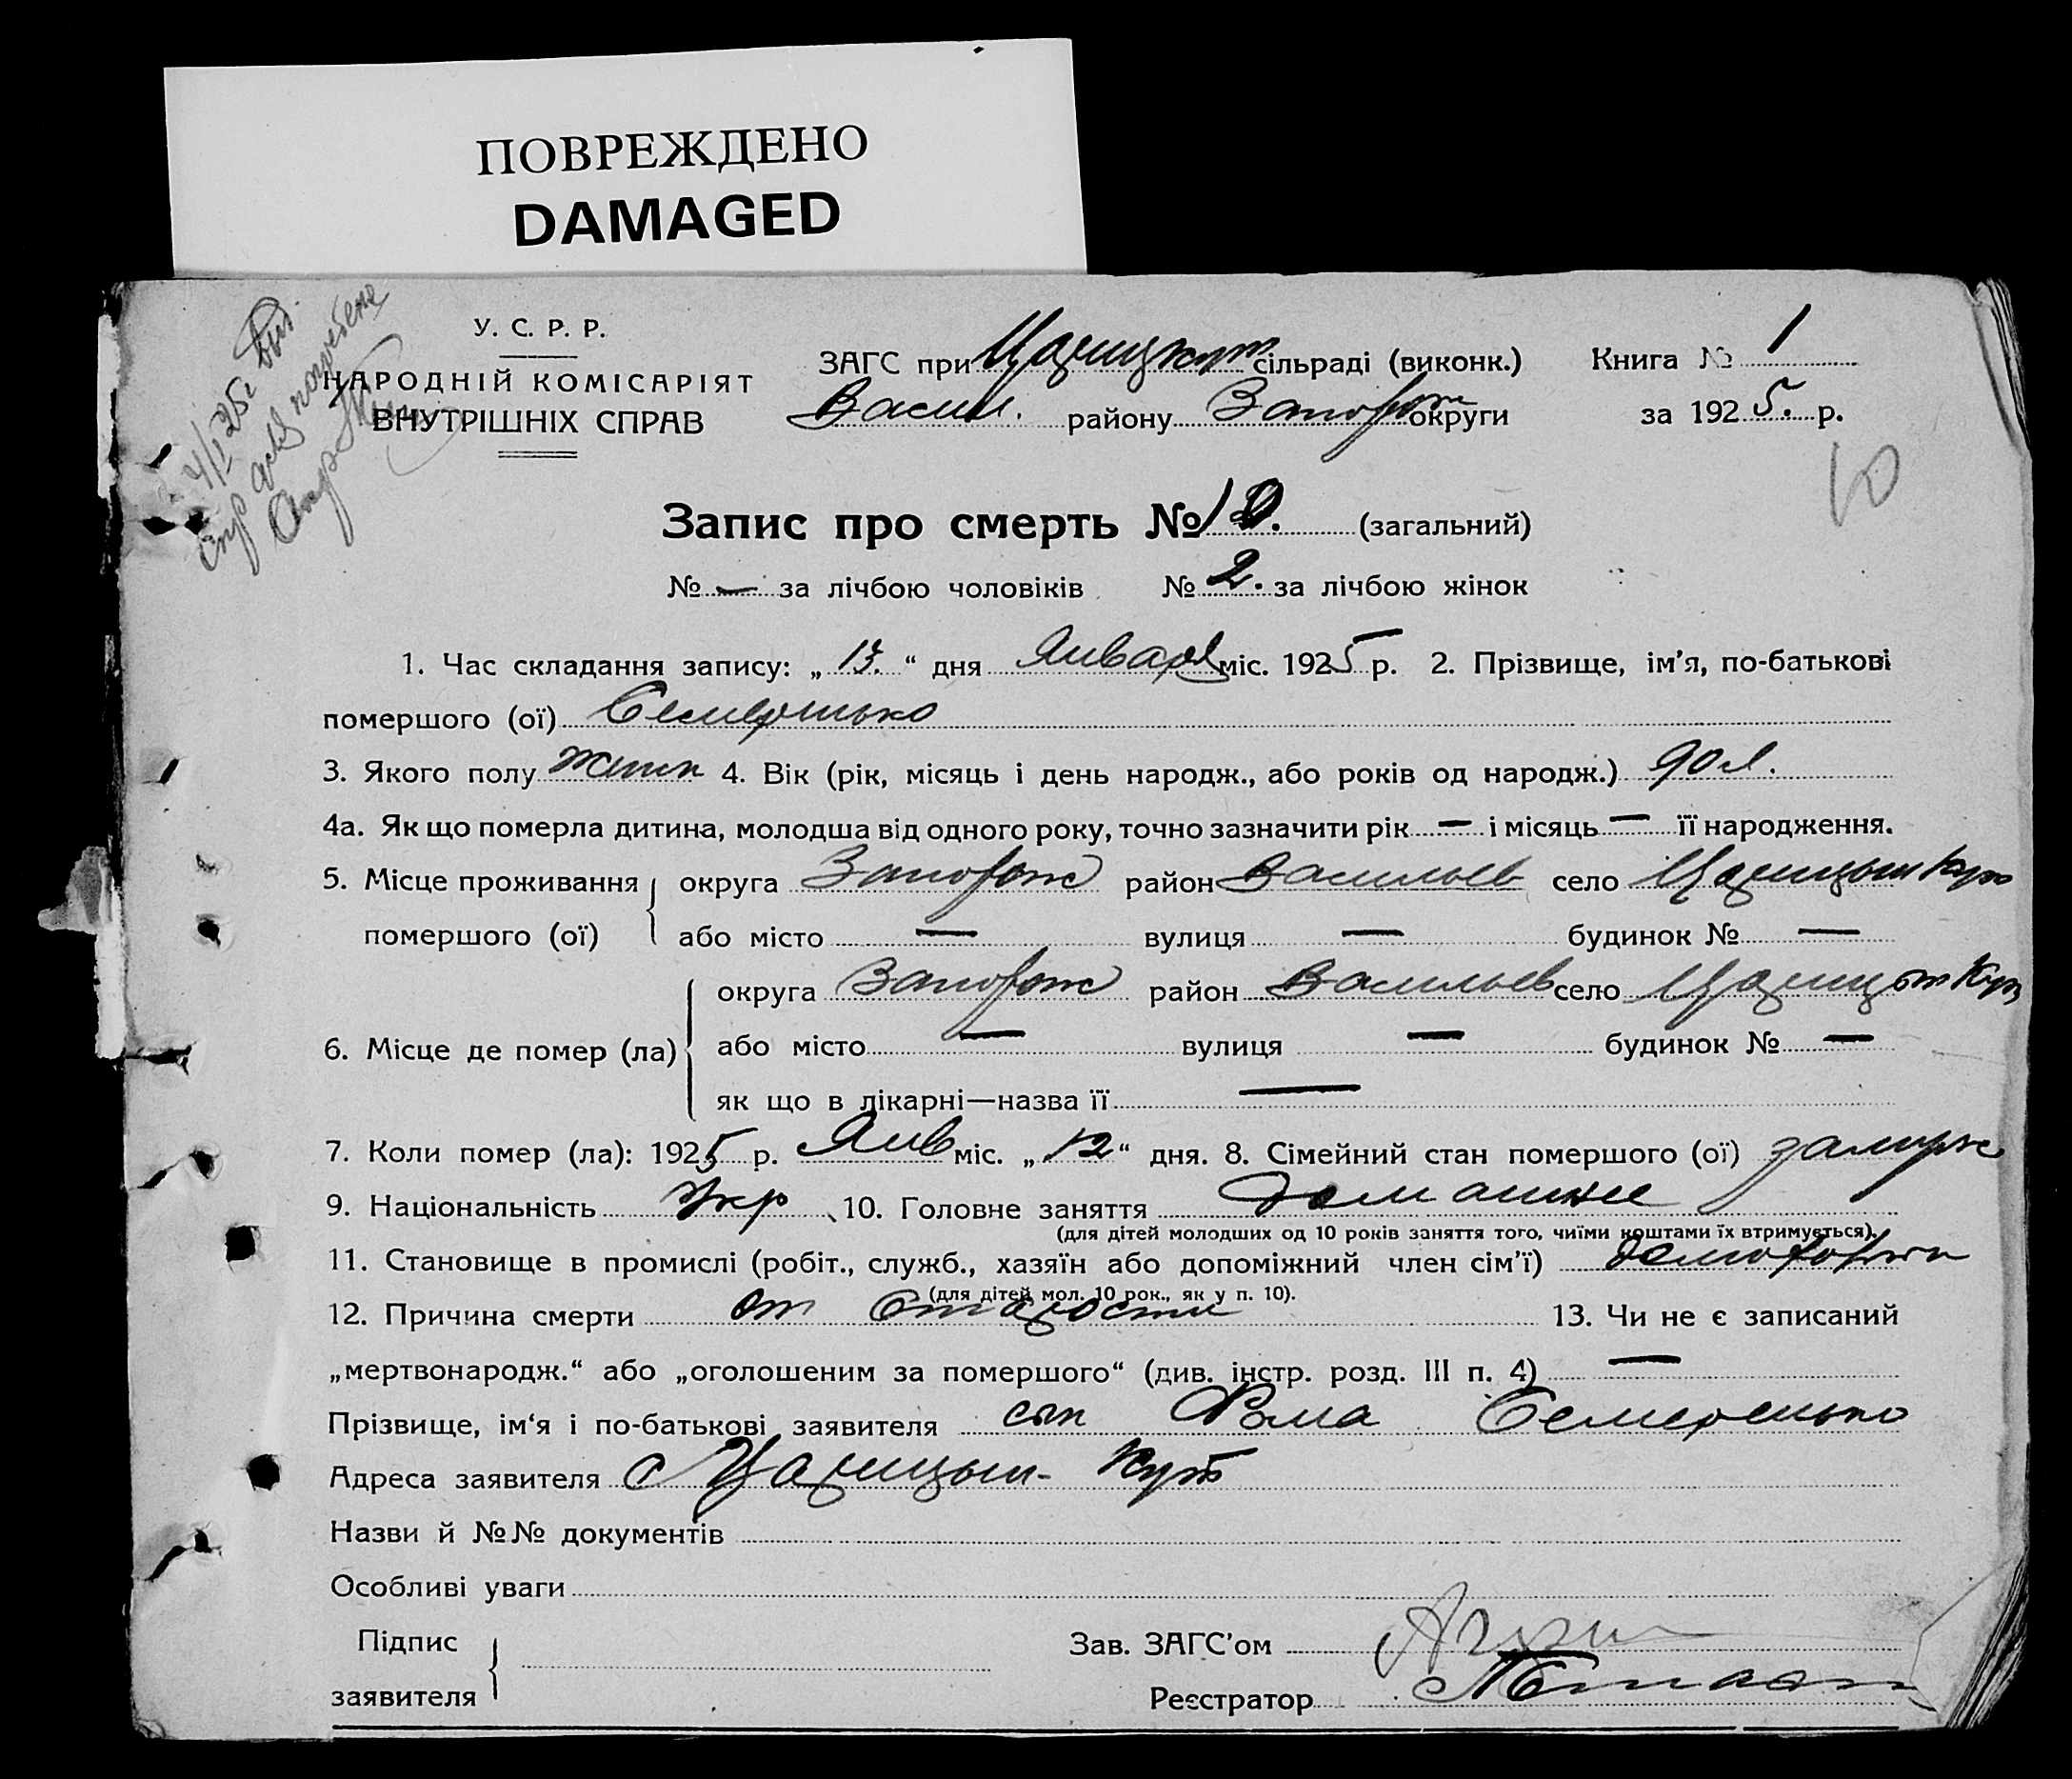 ПОВРЕЖДЕНО
DAMAGED
У. С. Р. Р.
НАРОДНІЙ КОМІСАРІЯТ
ВНУТРІШНІХ СПРАВ
ЗАГС при Царицкут сільраді (виконк.) Книга № 1
Васил. району Запорож округи за 1925. р.
10
Запис про смерть № 10. (загальний)
№ — за лічбою чоловіків № 2. за лічбою жінок
1. Час складання запису: „13.“ дня Января міс. 1925 р. 2. Прізвище, ім'я, по-батькові
помершого (ої) Семеренько
3. Якого полу женск 4. Вік (рік, місяць і день народж., або років од народж.) 90 л.
4а. Як що померла дитина, молодша від одного року, точно зазначити рік — і місяць — її народження.
5. Місце проживання округа Запорож район Васильев село Царицын Кут
помершого (ої) або місто — вулиця — будинок № —
округа Запорож район Васильев село Царицын Кут
6. Місце де помер (ла) або місто — вулиця — будинок № —
як що в лікарні—назва її —
7. Коли помер (ла): 1925 р. Янв міс. „12“ дня. 8. Сімейний стан помершого (ої) замуж
9. Національність Укр 10. Головне заняття Домашнее
(для дітей молодших од 10 років заняття того, чиїми коштами їх втримується).
11. Становище в промислі (робіт., служб., хазяїн або допоміжний член сім'ї)
(для дітей мол. 10 рок., як у п. 10).
12. Причина смерти от старости 13. Чи не є записаний
„мертвонародж.“ або „оголошеним за помершого“ (див. інстр. розд. III п. 4) —
Прізвище, ім'я і по-батькові заявителя сын Фома Семеренько
Адреса заявителя с Царицын-Кут
Назви й №№ документів
Особливі уваги
Підпис
заявителя
Зав. ЗАГС'ом
Реєстратор